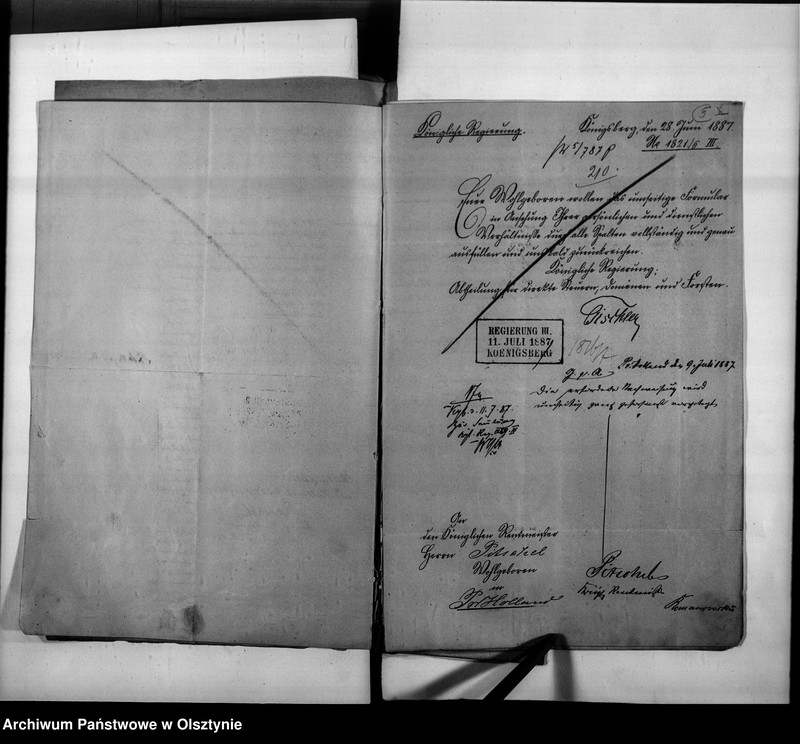 5
Königliche Regierung.
Königsberg, den 28. Juni 1887.
No 1821/6 III.
210.
Euer Wohlgeboren wollen das umseitige Formular
in Ansehung Ihrer persönlichen und dienstlichen
Verhältnisse durch alle Spalten vollständig und genau
ausfüllen und uns bald zurückreichen.
Königliche Regierung;
Abtheilung für direkte Steuern, Domänen und Forsten.
REGIERUNG III.
11. JULI 1887
KOENIGSBERG
Pr Holland den 9. Juli 1887
Die erforderte Nachweisung wird
umseitig ganz gehorsamst vorgelegt.
Kgb. d. 11.7.87.
An
den Königlichen Rentmeister
Herrn
Wohlgeboren
in
Pr Holland
Königl. Rentmeister
Archiwum Państwowe w Olsztynie